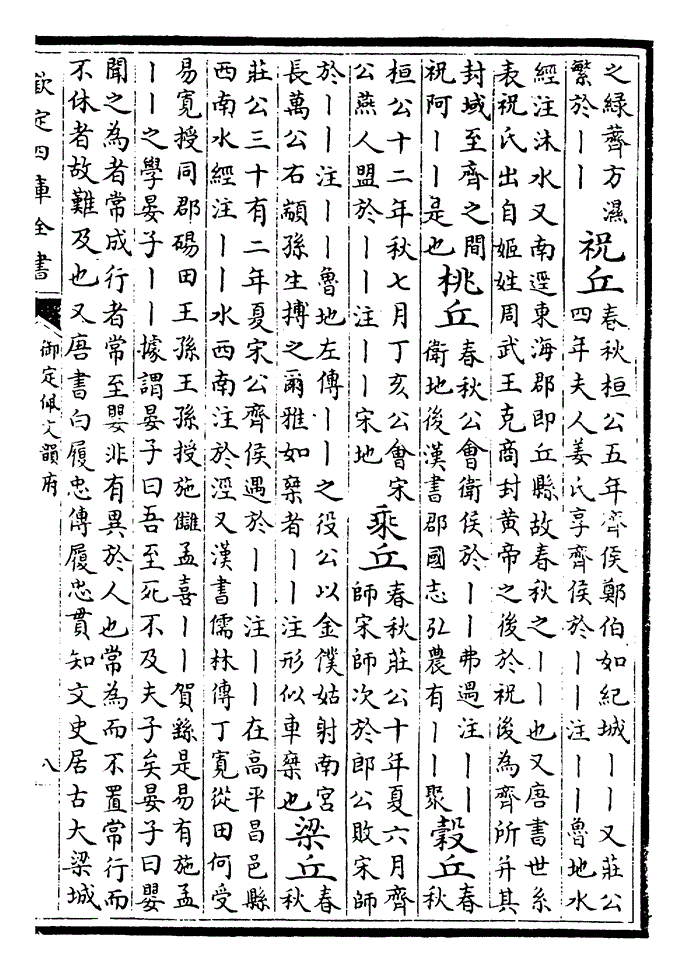 之緑薺方濕
繁於丨丨
祝丘
春秋桓公五年齊侯鄭伯如紀城丨丨又莊公
四年夫人姜氏享齊侯於丨丨注丨丨魯地水
經注沐水又南逕東海郡即丘縣故春秋之丨丨也又唐書世系
表祝氏出自姬姓周武王克商封黄帝之後於祝後為齊所并其
封域至齊之間
祝阿丨丨是也
桃丘
春秋公會衛侯於丨丨弗遇注丨丨
衛地後漢書郡國志弘農有丨丨聚
穀丘
春
秋
桓公十二年秋七月丁亥公會宋
公燕人盟於丨丨注丨丨宋地
乘丘
春秋莊公十年夏六月齊
師宋師次於郎公敗宋師
於丨丨注丨丨魯地左傳丨丨之役公以金僕姑射南宮
長萬公右顓孫生搏之爾雅如椉者丨丨注形似車椉也
梁丘
春
秋
莊公三十有二年夏宋公齊侯遇於丨丨注丨丨在高平昌邑縣
西南水經注丨丨水西南注於涇又漢書儒林傳丁寛從田何受
易寛授同郡碭田王孫王孫授施讎孟喜丨丨賀繇是易有施孟
丨丨之學晏子丨丨據謂晏子曰吾至死不及夫子矣晏子曰嬰
聞之為者常成行者常至嬰非有異於人也常為而不置常行而
不休者故難及也又唐書白履忠傳履忠貫知文史居古大梁城
欽定四庫全書
御定佩文韻府
八